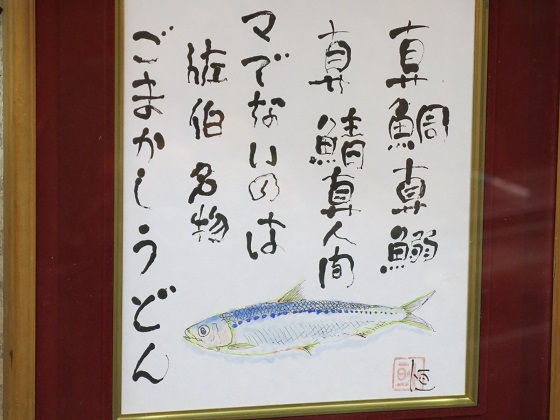 真鯛真鰯
真鯖真人間
マでないのは
佐伯名物
ごまかしうどん
恒